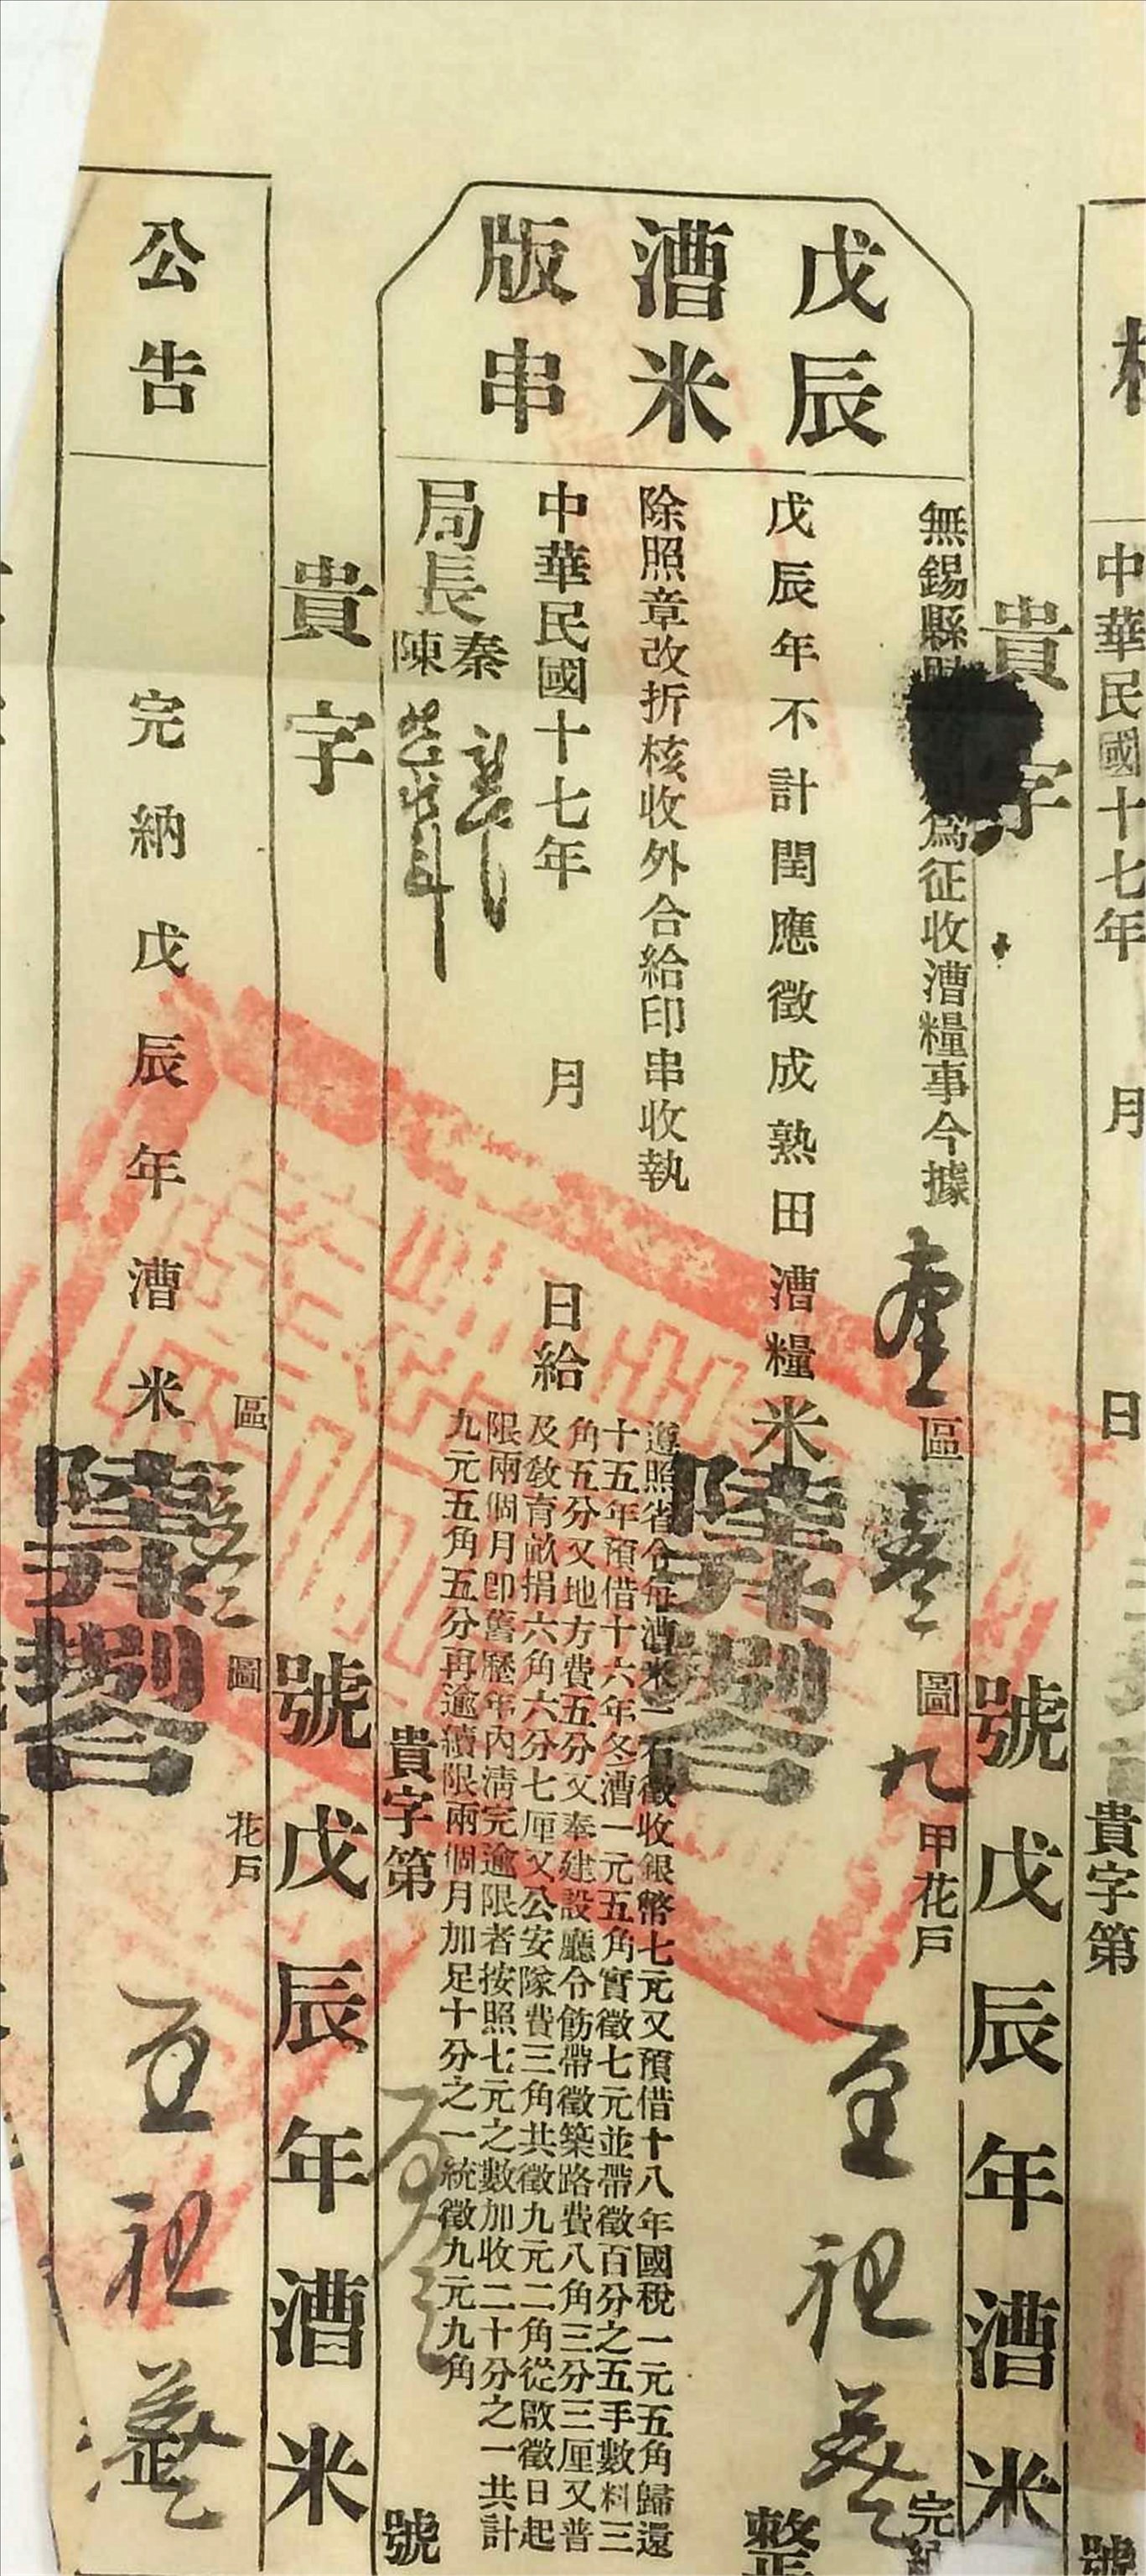 中華民國十七年　月　日
貴字第　號
貴字　號戊辰年漕米
戊辰
漕米
版串
無錫縣　為征收漕糧事今據壹區　圖九甲花戶
完
戊辰年不計閏應徵成熟田漕糧米陸升捌合　整
除照章改折核收外合給印串收執
中華民國十七年　月　日給
局長秦陳
遵照省令每漕米一石徵收銀幣七元又預借十八年國稅一元五角歸還
十五年預借十六年冬漕一元五角實徵七元並帶徵百分之五手數料三
角五分又地方費五分又奉建設廳令飭帶徵築路費八角三分三厘又普
及敎育畝捐六角六分七厘又公安隊費三角共徵九元二角從啟徵日起
限兩個月卽舊歷年內淸完逾限者按照七元之數加收二十分之一共計
九元五角五分再逾續限兩個月加足十分之一統徵九元九角
貴字第　號
貴字　號戊辰年漕米
公告
區　圖　花戶
完納戊辰年漕米陸升捌合　整